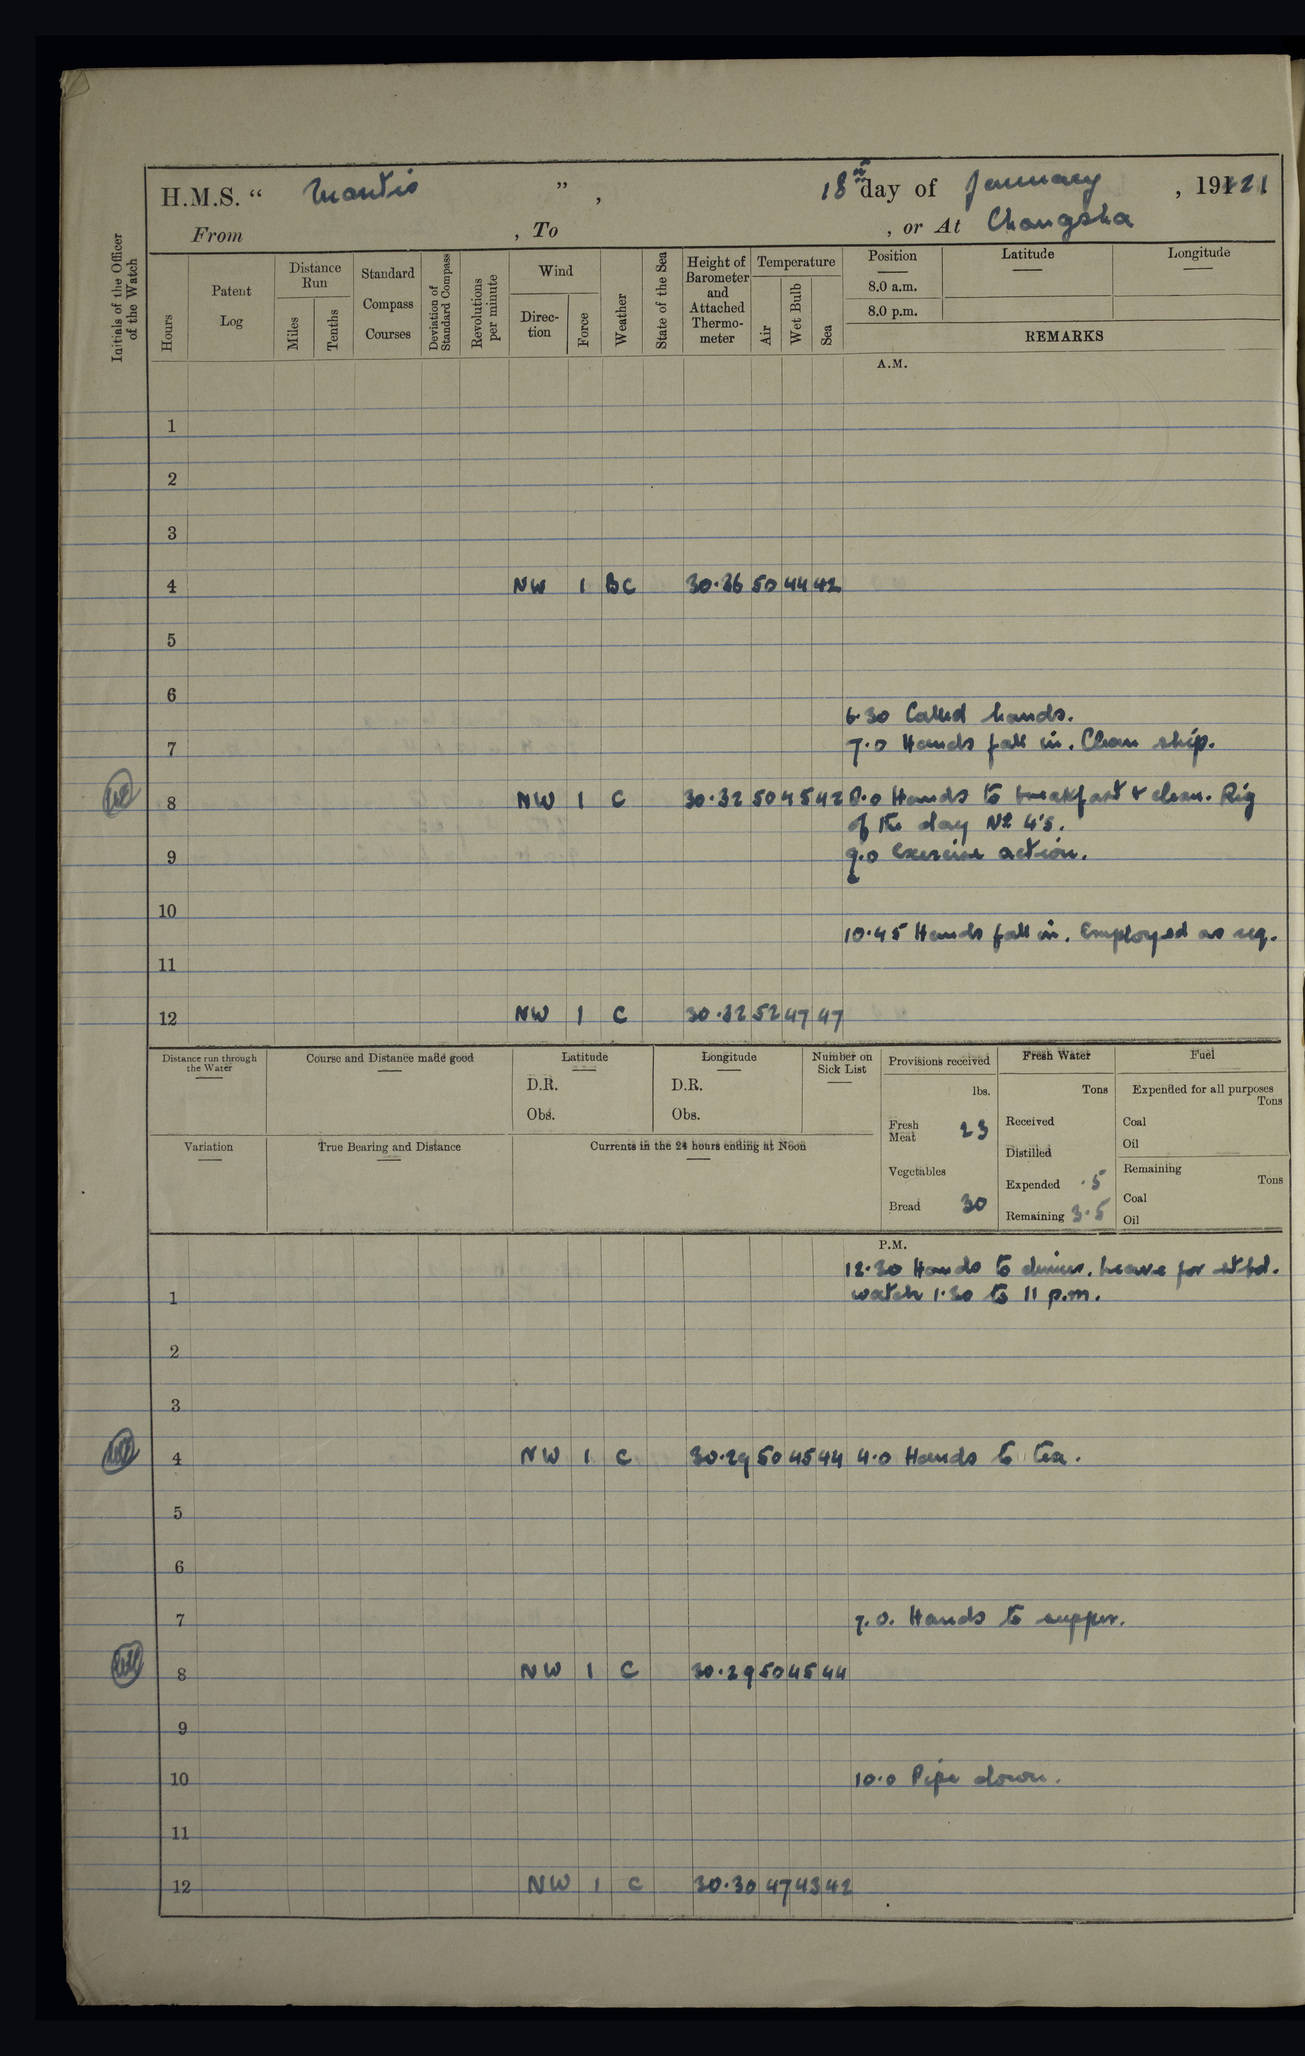 H.M.S. “ Mantis ”, 18th day of January, 1921
From , To , or At Changsha
Initials of the Officer of the Watch
Hours
Patent Log
Distance Run
Miles
Tenths
Standard Compass Courses
Deviation of Standard Compass
Revolutions per minute
Wind
Direc-tion
Force
Weather
State of the Sea
Height of Barometer and Attached Thermo-meter
Temperature
Air
Wet Bulb
Sea
Position Latitude Longitude
8.0 a.m.
8.0 p.m.
REMARKS
A.M.
1
2
3
4 NW 1 BC 30.36 50 44 42
5
6
6.30 Called hands.
7 7.0 Hands fall in. Clean ship.
8 NW 1 C 30.32 50 45 42 8.0 Hands to breakfast & clean. Rig
of the day No 4's.
9 9.0 Exercise action.
10
10.45 Hands fall in. Employed as req.
11
12 NW 1 C 30.32 52 47 47
Distance run through the Water
Course and Distance made good
Latitude
D.R.
Obs.
Longitude
D.R.
Obs.
Number on Sick List
Variation
True Bearing and Distance
Currents in the 24 hours ending at Noon
Provisions received
lbs.
Fresh Meat 23
Vegetables
Bread 30
Fresh Water
Tons
Received
Distilled
Expended .5
Remaining 3.5
Fuel
Expended for all purposes
Tons
Coal
Oil
Remaining
Tons
Coal
Oil
P.M.
12.30 Hands to dinner. Leave for stbd.
1 watch 1.30 to 11 p.m.
2
3
4 NW 1 C 30.29 50 45 44 4.0 Hands to tea.
5
6
7 7.0. Hands to supper.
8 NW 1 C 30.29 50 45 44
9
10 10.0 Pipe down.
11
12 NW 1 C 30.30 47 43 42